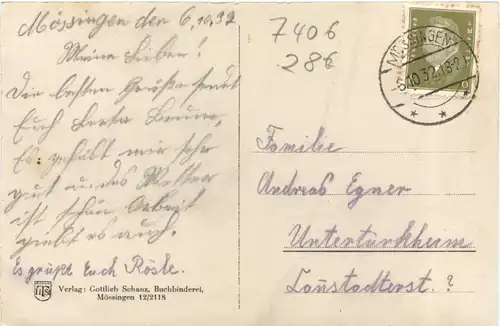 Mössingen den 6.10.32
Meine Lieben!
Die besten Grüße sendt
Euch Berta
Es gefällt mir sehr
gut u. das Wetter
ist schön Arbeit
giebt es auch.
Es grüßt Euch Rösle.
Verlag: Gottlieb Schanz, Buchbinderei,
Mössingen 12/2118
7406
28€
MÖSSINGEN
10.32.18-2
Familie
Andreas Egner
Untertürkheim
?